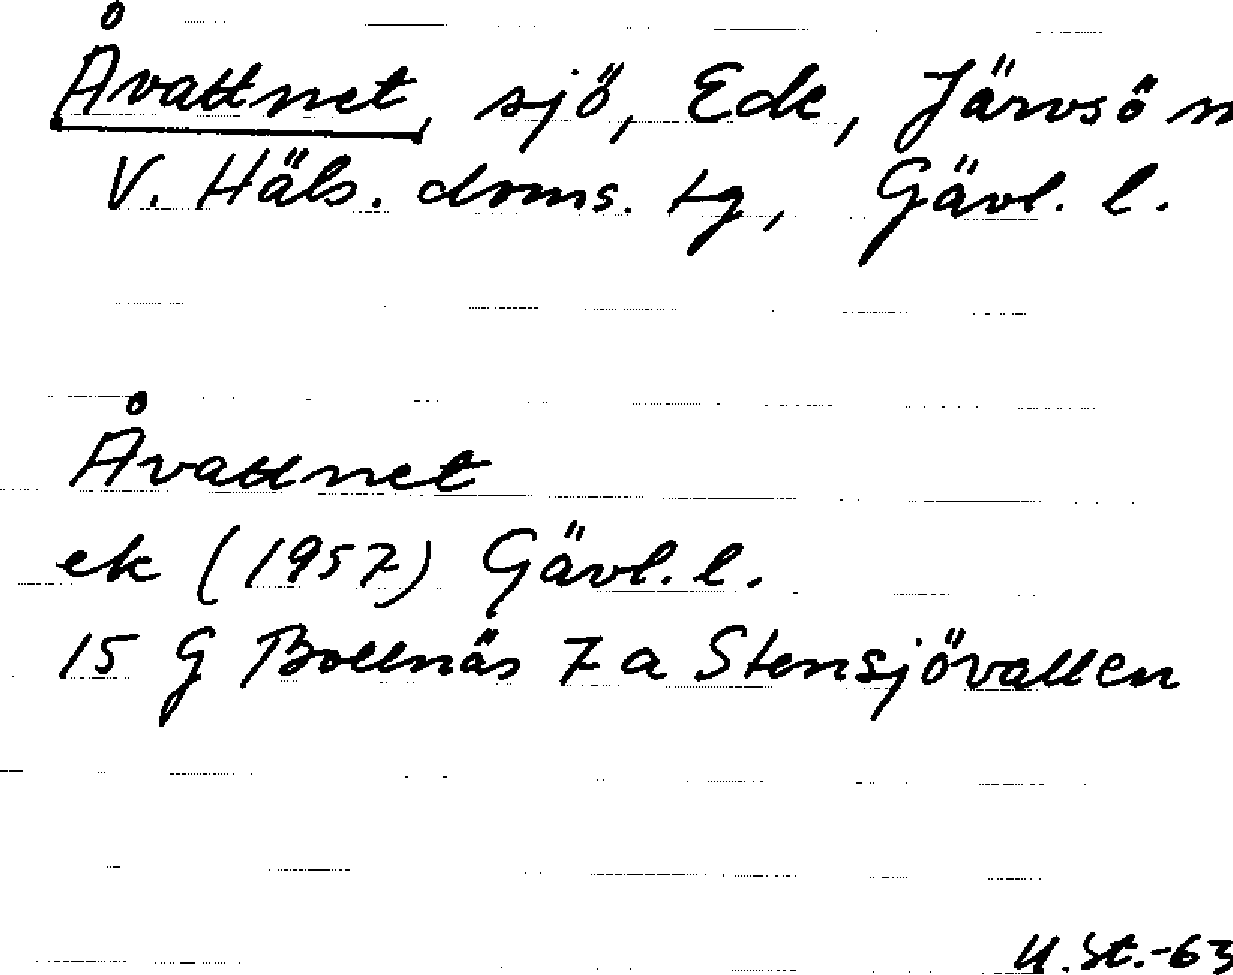 Åvattnet, sjö, Ede, Järvsö sn
V. Häls. doms. tg, Gävl. l.
Åvattnet
ek (1957) Gävl. l.
15 G Bollnäs 7 a Stensjövallen
U. St. -63